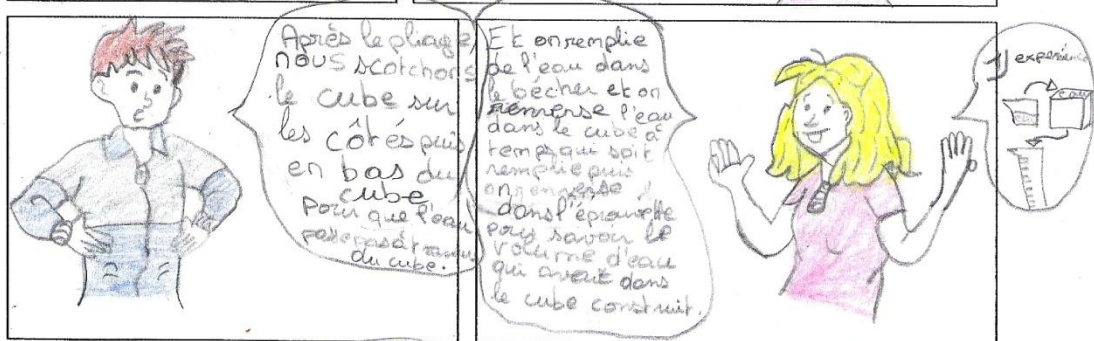 Après le pliage
nous scotchons
le cube sur
les côtés puis
en bas du
cube
pour que l'eau
passe pas à travers
du cube.
Et on remplie
de l'eau dans
le becher et on
renverse l'eau
dans le cube à
temps qui soit
remplie puis
on renverse
dans l'éprouvette
pour savoir le
volume d'eau
qui avait dans
le cube construit.
1) expérience